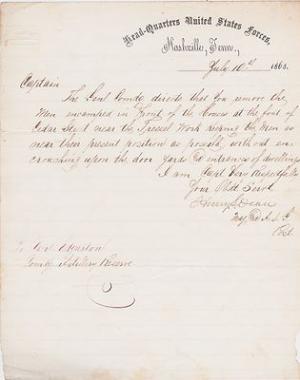 Head-Quarters United States Forces,
Nashville, Tenn., July 10th 1863.
Captain
The Genl Comdg directs that You remove the
Men encamped in Front of the Houses at the foot of
Cedar Street near the Present Work keeping the Men as
near their present position as possible, without en
croaching upon the door yards & entrances of dwellings
I am, Capt Very Respectfully
Your Obt Servt